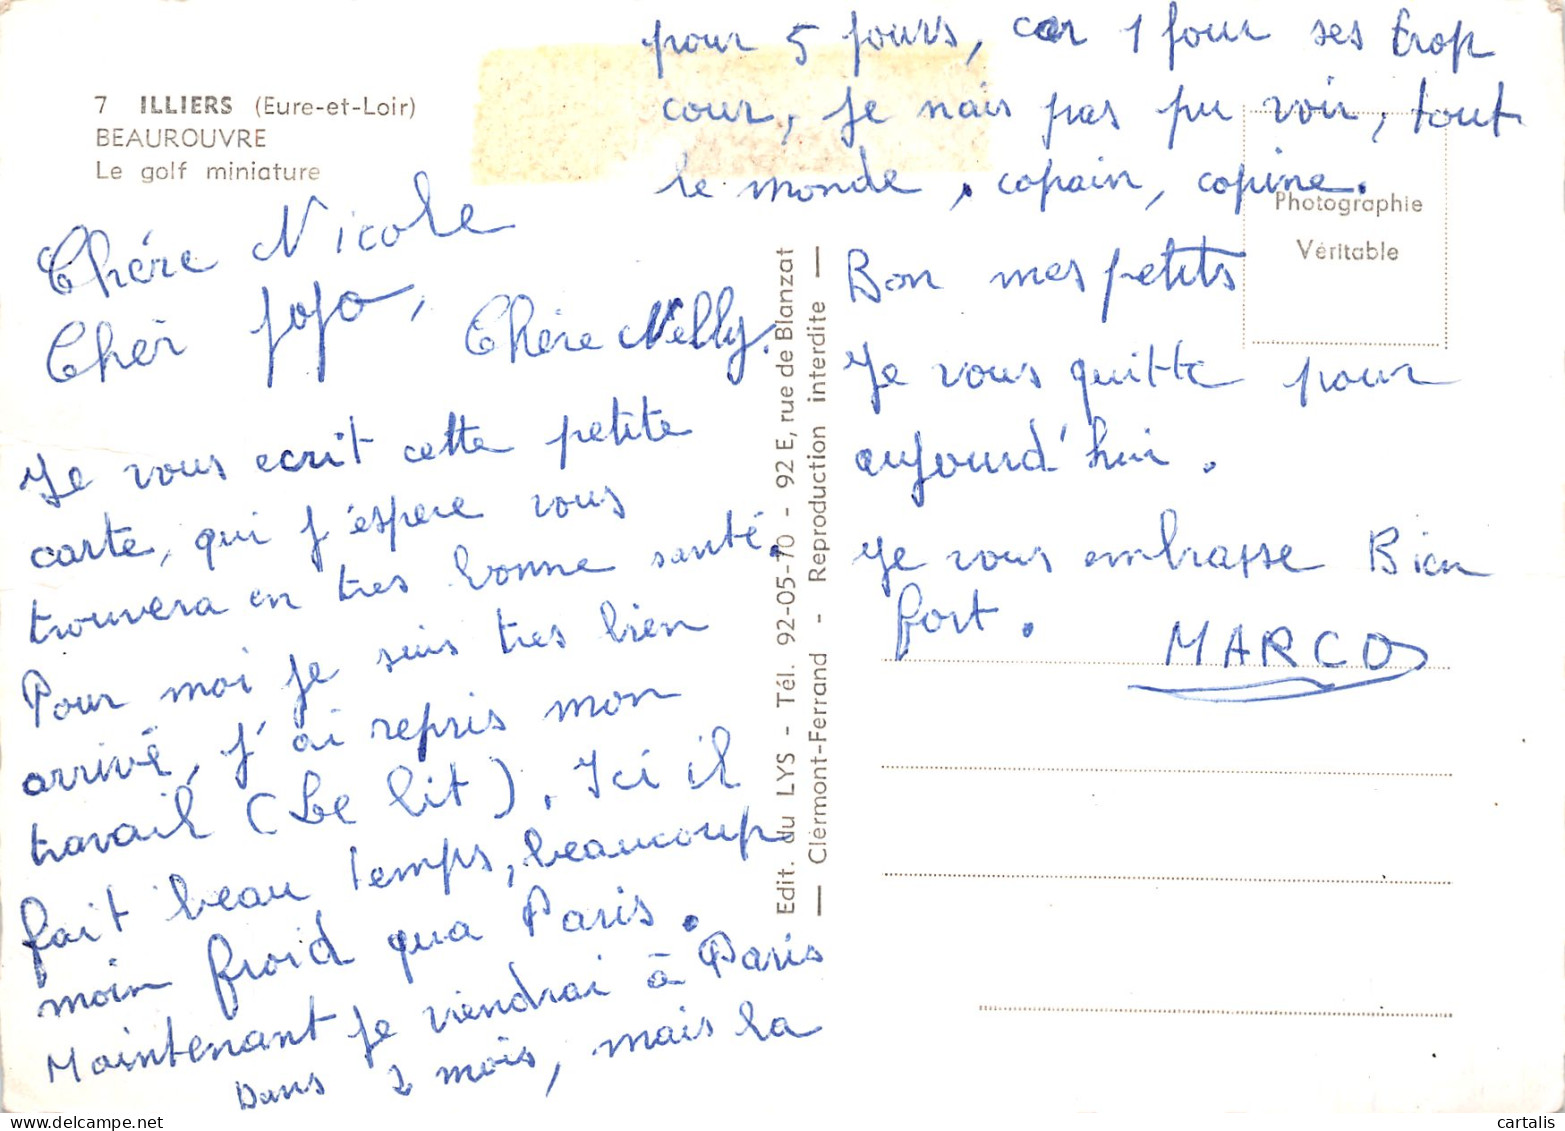 7 ILLIERS (Eure-et-Loir)
BEAUROUVRE
Le golf miniature
Chére Nicole
Chèr jojo,
Chére Nelly.
Je vous ecrit cette petite
carte, qui j'éspere vous
trouvera en tres bonne santé.
Pour moi je suis tres bien
arrivé, j'ai repris mon
travail (Le lit). Ici il
fait beau temps, beaucoup
moin froid qua Paris.
Maintenant je viendrai à Paris
Dans 2 mois, mais la
pour 5 jours, car 1 jour ses trop
cour, je nais pas pu voir, tout
le monde, copain, copine.
Bon mes petits
Je vous quitte pour
aujourd'hui.
je vous embrasse Bien
fort.
MARCO
Edit. du LYS - Tél. 92-05-70 - 92 E, rue de Blanzat
— Clérmont-Ferrand - Reproduction interdite —
Photographie
Véritable
cartalis